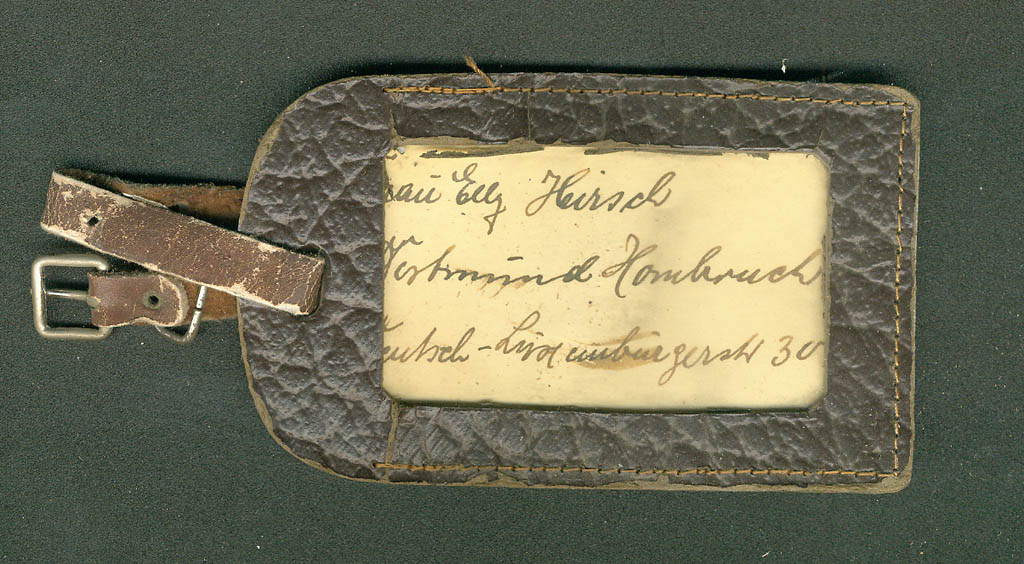 rau Elly Hirsch
Dortmund Hombruch
eutsch-Luxemburgerstr 30